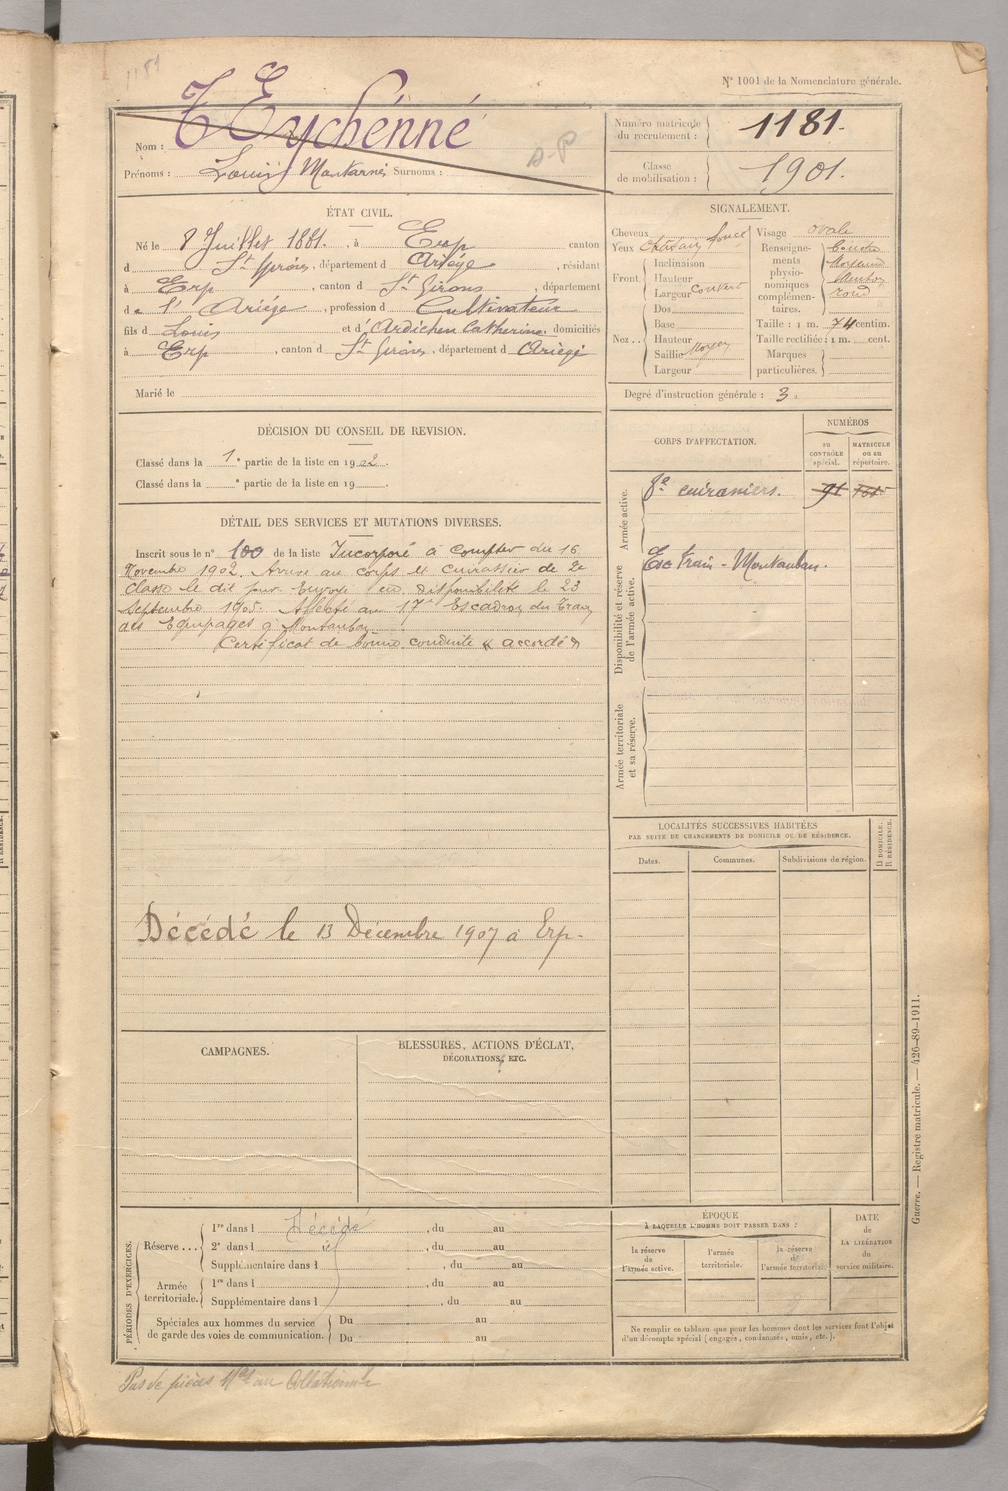 1181
N° 1001 de la Nomenclature générale.
Nom : Eychénné
Prénoms : Louis Surnoms :
Numéro matricule du recrutement : 1181.
Classe de mobilisation : 1901.
ÉTAT CIVIL.
Né le 8 Juillet 1881. , à Erp canton
d St Girons , département d Ariége , résidant
à Erp , canton d St Girons , département
de l'Ariége , profession d Cultivateur
fils d Louis et d' Ardichen Catherine, domiciliés
à Erp , canton d St Girons , département d Ariége
Marié le
SIGNALEMENT.
Cheveux
Yeux foncé
Front. Inclinaison
Hauteur
Largeur couvert
Dos
Nez. . Base
Hauteur
Saillie Moyen
Largeur
Visage ovale
Renseignements physionomiques complémentaires. Menton rond
Taille : 1 m. 74 centim.
Taille rectifiée : 1 m. cent.
Marques particulières.
Degré d'instruction générale : 3.
DÉCISION DU CONSEIL DE REVISION.
Classé dans la 1e partie de la liste en 1902.
Classé dans la e partie de la liste en 19 .
DÉTAIL DES SERVICES ET MUTATIONS DIVERSES.
Inscrit sous le n° 100 de la liste Incorporé à compter du 16
Novembre 1902. Arrivé au corps et cuirassier de 2e
classe le dit jour. Envoyé en disponibilité le 23
Septembre 1905. Affecté au 17e Escadron du Train
des Equipages à Montauban
Certificat de bonne conduite « accordé »
Décédé le 13 Décembre 1907 à Erp.
CORPS D'AFFECTATION.
NUMÉROS
au CONTRÔLE spécial.
MATRICULE ou au répertoire.
Armée active.
8e cuirassiers. 91
Disponibilité et réserve de l'armée active.
Esc Train - Montauban.
Armée territoriale et sa réserve.
LOCALITÉS SUCCESSIVES HABITÉES
PAR SUITE DE CHANGEMENTS DE DOMICILE OU DE RÉSIDENCE.
Dates.
Communes.
Subdivisions de région.
D DOMICILE. R RÉSIDENCE.
CAMPAGNES.
BLESSURES, ACTIONS D'ÉCLAT,
DÉCORATIONS, ETC.
PÉRIODES D'EXERCICES.
Réserve . . . 1re dans l Décédé , du au
2e dans l , du au
Supplémentaire dans l , du au
Armée territoriale. 1re dans l , du au
Supplémentaire dans l , du au
Spéciales aux hommes du service de garde des voies de communication. Du au
Du au
ÉPOQUE
À LAQUELLE L'HOMME DOIT PASSER DANS :
la réserve de l'armée active.
l'armée territoriale.
la réserve de l'armée territoriale.
DATE de LA LIBÉRATION du service militaire.
Ne remplir ce tableau que pour les hommes dont les services font l'objet
d'un décompte spécial (engagés, condamnés, omis, etc.).
Guerre. — Registre matricule. — 426-89-1911.
Pas de pièces